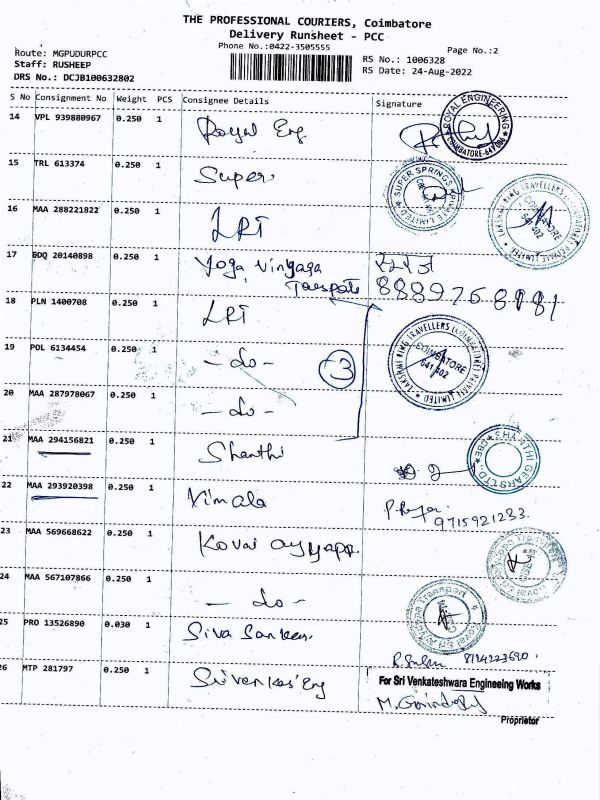 THE PROFESSIONAL COURIERS, Coimbatore
Delivery Runsheet - PCC
Phone No.:0422-3505555
Page No.:2
Route: MGPUDURPCC
Staff: RUSHEEP
DRS No.: DCJB100632802
RS No.: 1006328
RS Date: 24-Aug-2022
S No Consignment No Weight PCS Consignee Details Signature
14 VPL 939880967 0.250 1 Royal Eng.
ROYAL ENGINEERING
COIMBATORE-641 006
15 TRL 613374 0.250 1 Super
SUPER SPRINGS PRIVATE LIMITED
16 MAA 288221822 0.250 1 LRT
LAKSHMI RING TRAVELLERS (COIMBATORE) PRIVATE LIMITED
COIMBATORE
641 402
17 BDQ 20140898 0.250 1 Yoga Vinyaga
18 PLN 1400708 0.250 1 LRT
19 POL 6134454 0.250 1 - do -
3
LAKSHMI RING TRAVELLERS (COIMBATORE) PRIVATE LIMITED
COIMBATORE
641 402
20 MAA 287978067 0.250 1 - do -
21 MAA 294156821 0.250 1 Shanthi
SHANTHI GEARS LTD. CBE
22 MAA 293920398 0.250 1 Vimala
9715921233
23 MAA 569668622 0.250 1 Kovai Ayyappa
24 MAA 567107866 0.250 1 - do -
25 PRO 13526890 0.030 1 Siva Sankar
26 MTP 281797 0.250 1 Srivenkas Eng
For Sri Venkateshwara Engineeing Works
Proprietor